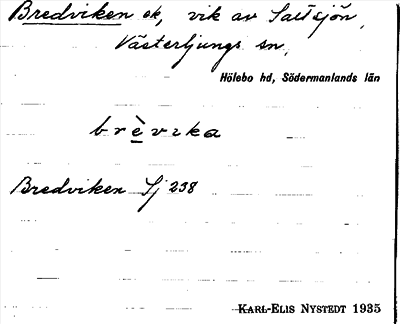 Bredviken ek, vik av Saltsjön,
Västerljungs sn,
Hölebo hd, Södermanlands län
brèvika
Bredviken Sj 238
KARL-ELIS NYSTEDT 1935